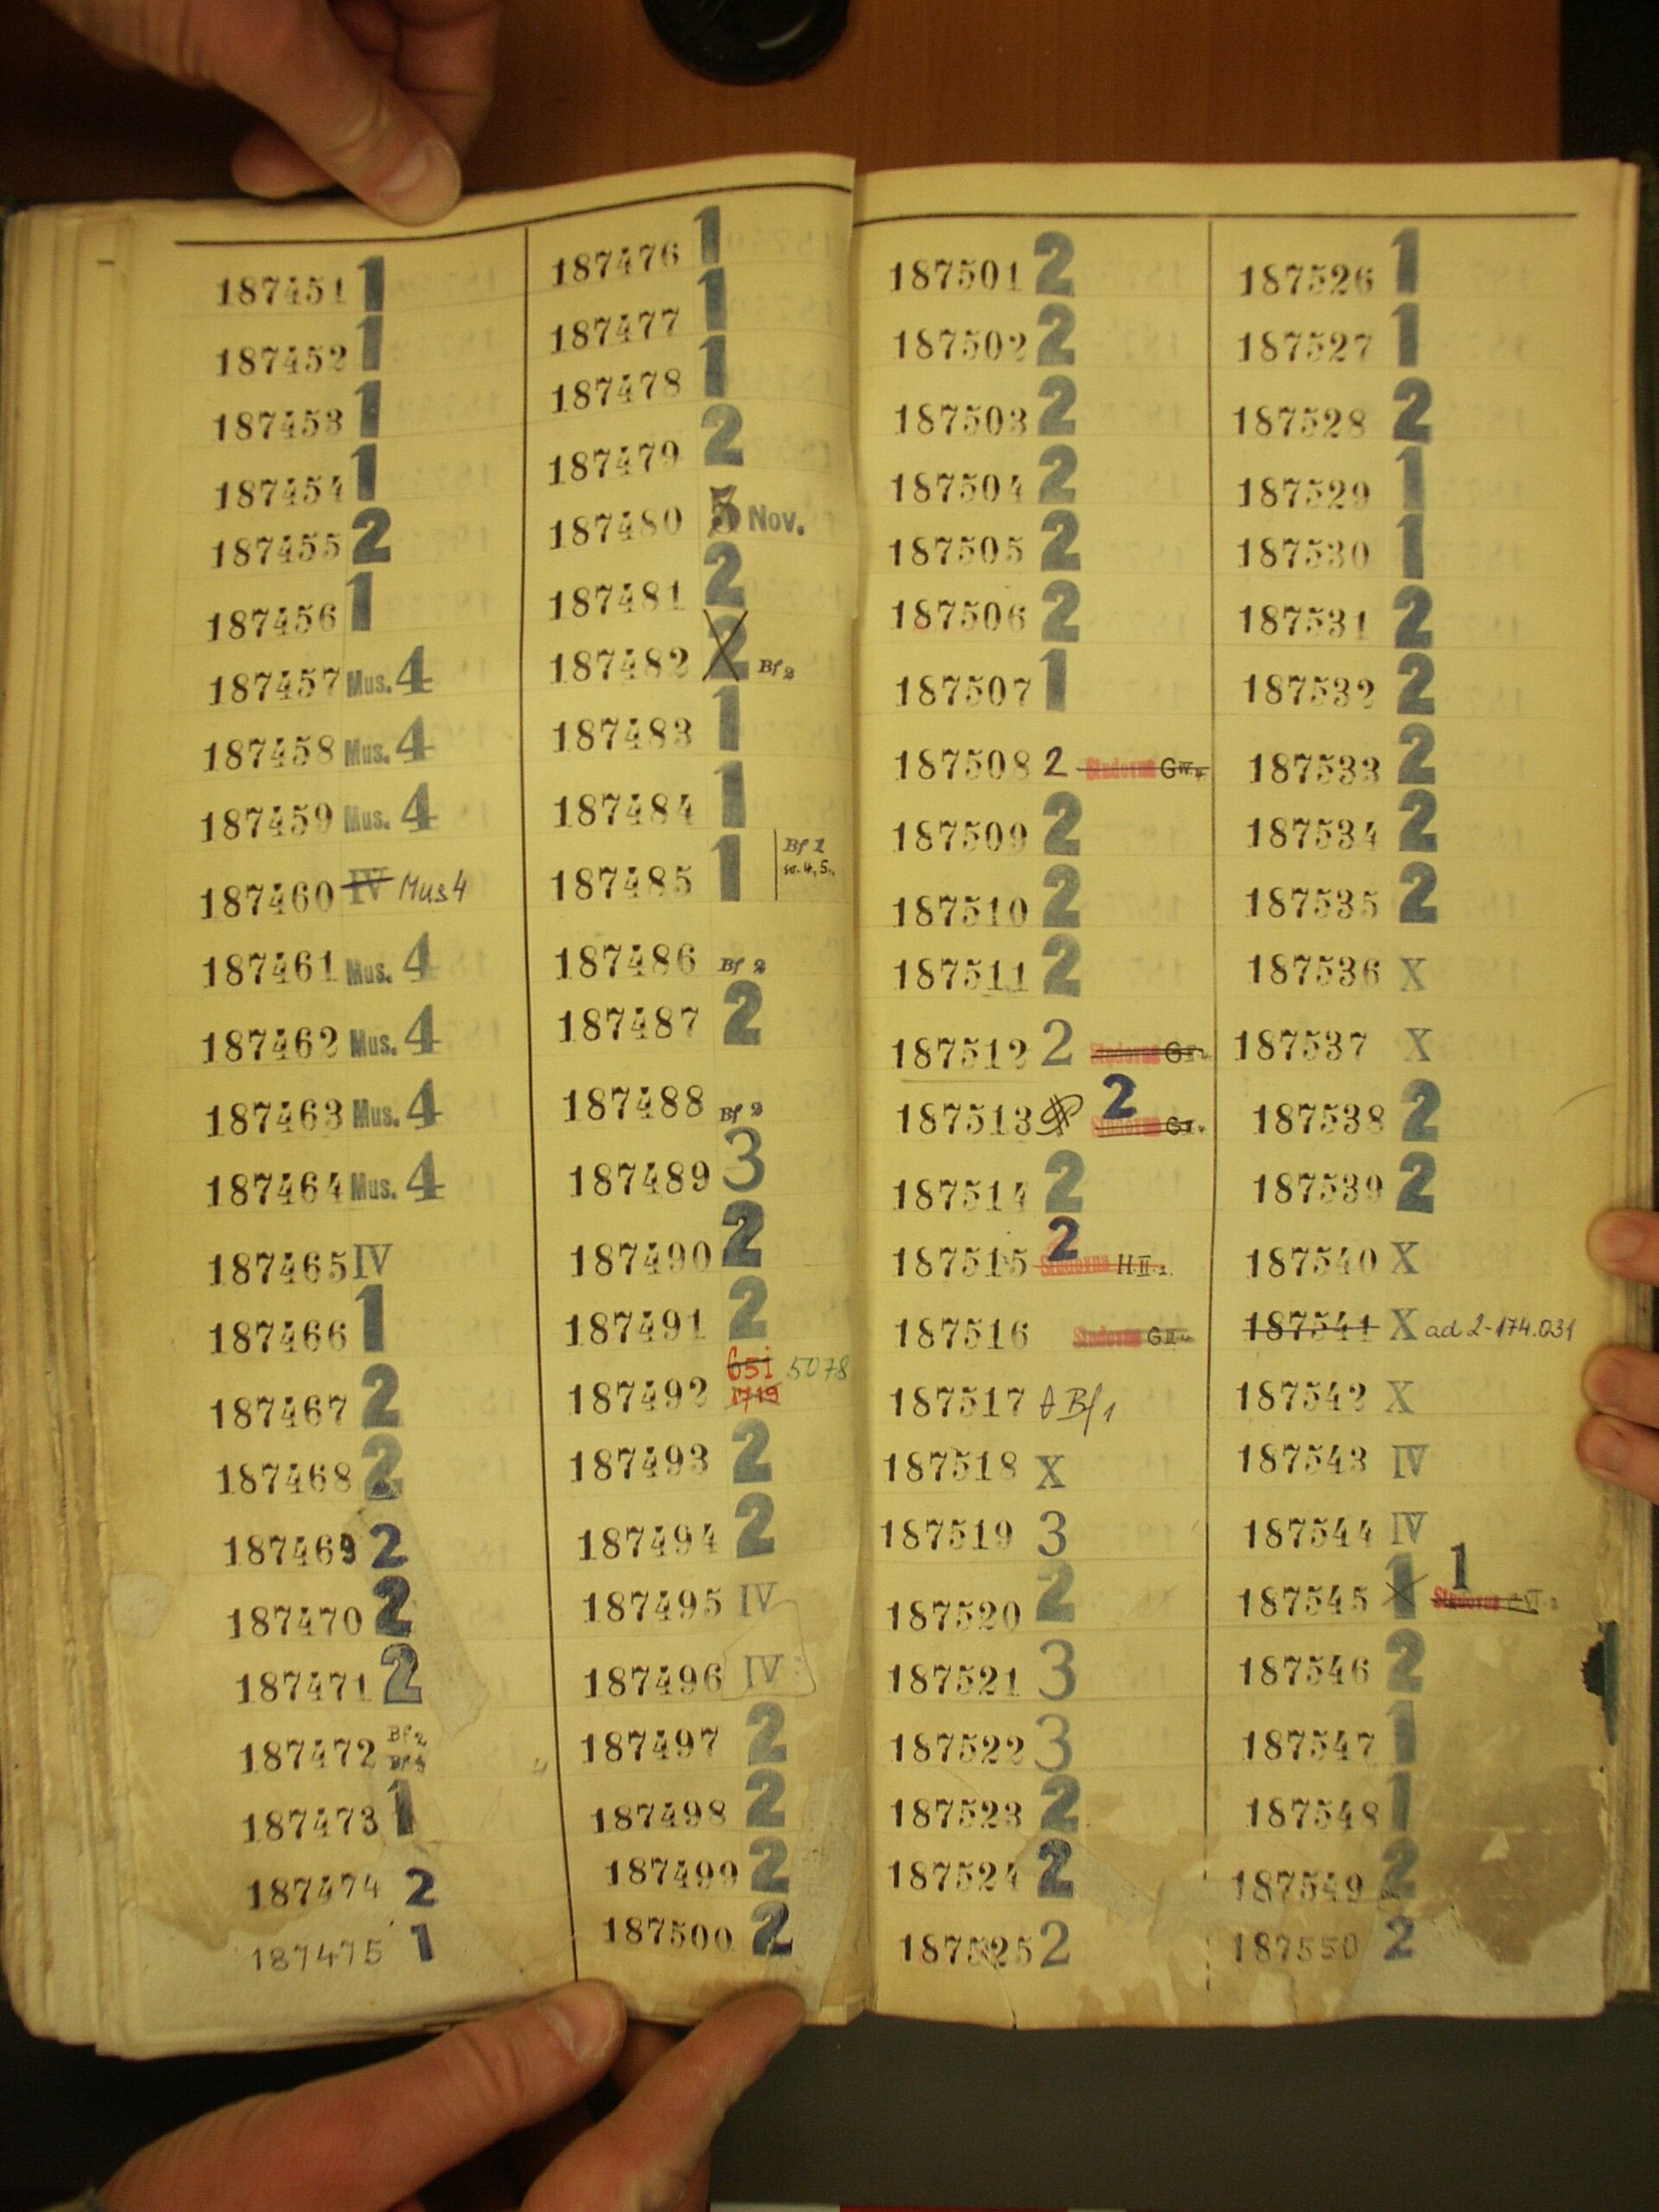 187451 1
187452 1
187453 1
187454 1
187455 2
187456 1
187457 Mus. 4
187458 Mus. 4
187459 Mus. 4
187460 IV Mus 4
187461 Mus. 4
187462 Mus. 4
187463 Mus. 4
187464 Mus. 4
187465 IV
187466 1
187467 2
187468 2
187469 2
187470 2
187471 2
187472 Bf 2
187473 1
187474 2
187475 1
187476 1
187477 1
187478 1
187479 2
187480 5 Nov.
187481 2
187482 2 Bf 2
187483 1
187484 1
187485 1 Bf 1
sv. 4, 5.
187486 Bf 2
187487 2
187488 Bf 2
187489 3
187490 2
187491 2
187492 65i 5078
187493 2
187494 2
187495 IV
187496 IV
187497 2
187498 2
187499 2
187500 2
187501 2
187502 2
187503 2
187504 2
187505 2
187506 2
187507 1
187508 2 Studovna G IV.
187509 2
187510 2
187511 2
187512 2 Studovna G
187513 2 Studovna G
187514 2
187515 2 Studovna H.II.
187516 Studovna G III
187517 A Bf 1
187518 X
187519 3
187520 2
187521 3
187522 3
187523 2
187524 2
187525 2
187526 1
187527 1
187528 2
187529 1
187530 1
187531 2
187532 2
187533 2
187534 2
187535 2
187536 X
187537 X
187538 2
187539 2
187540 X
187541 X ad 2-174.031
187542 X
187543 IV
187544 IV
187545 1 1 Studovna
187546 2
187547 1
187548 1
187549 2
187550 2